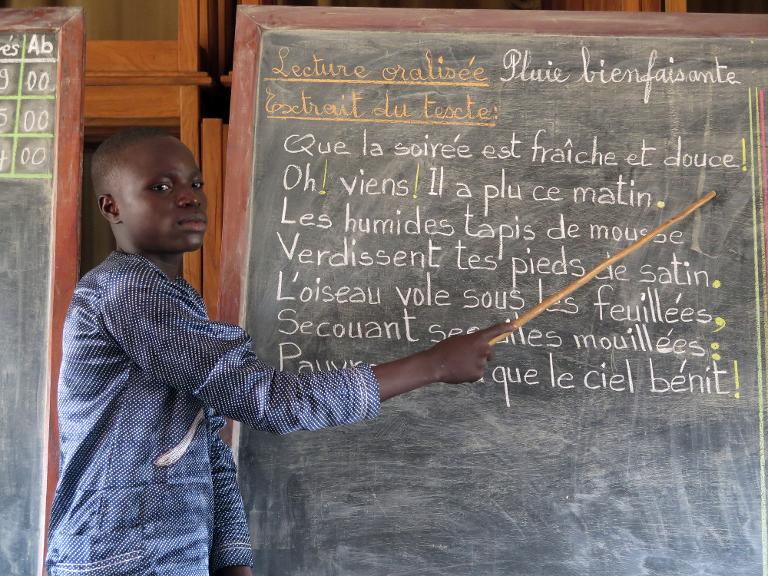 és Ab
9 00
5 00
4 00
Lecture oralisée Pluie bienfaisante
Extrait du texte:
Que la soirée est fraîche et douce!
Oh! viens! Il a plu ce matin.
Les humides tapis de mousse
Verdissent tes pieds de satin.
L'oiseau vole sous les feuillées,
Secouant ses ailes mouillées:
que le ciel bénit!